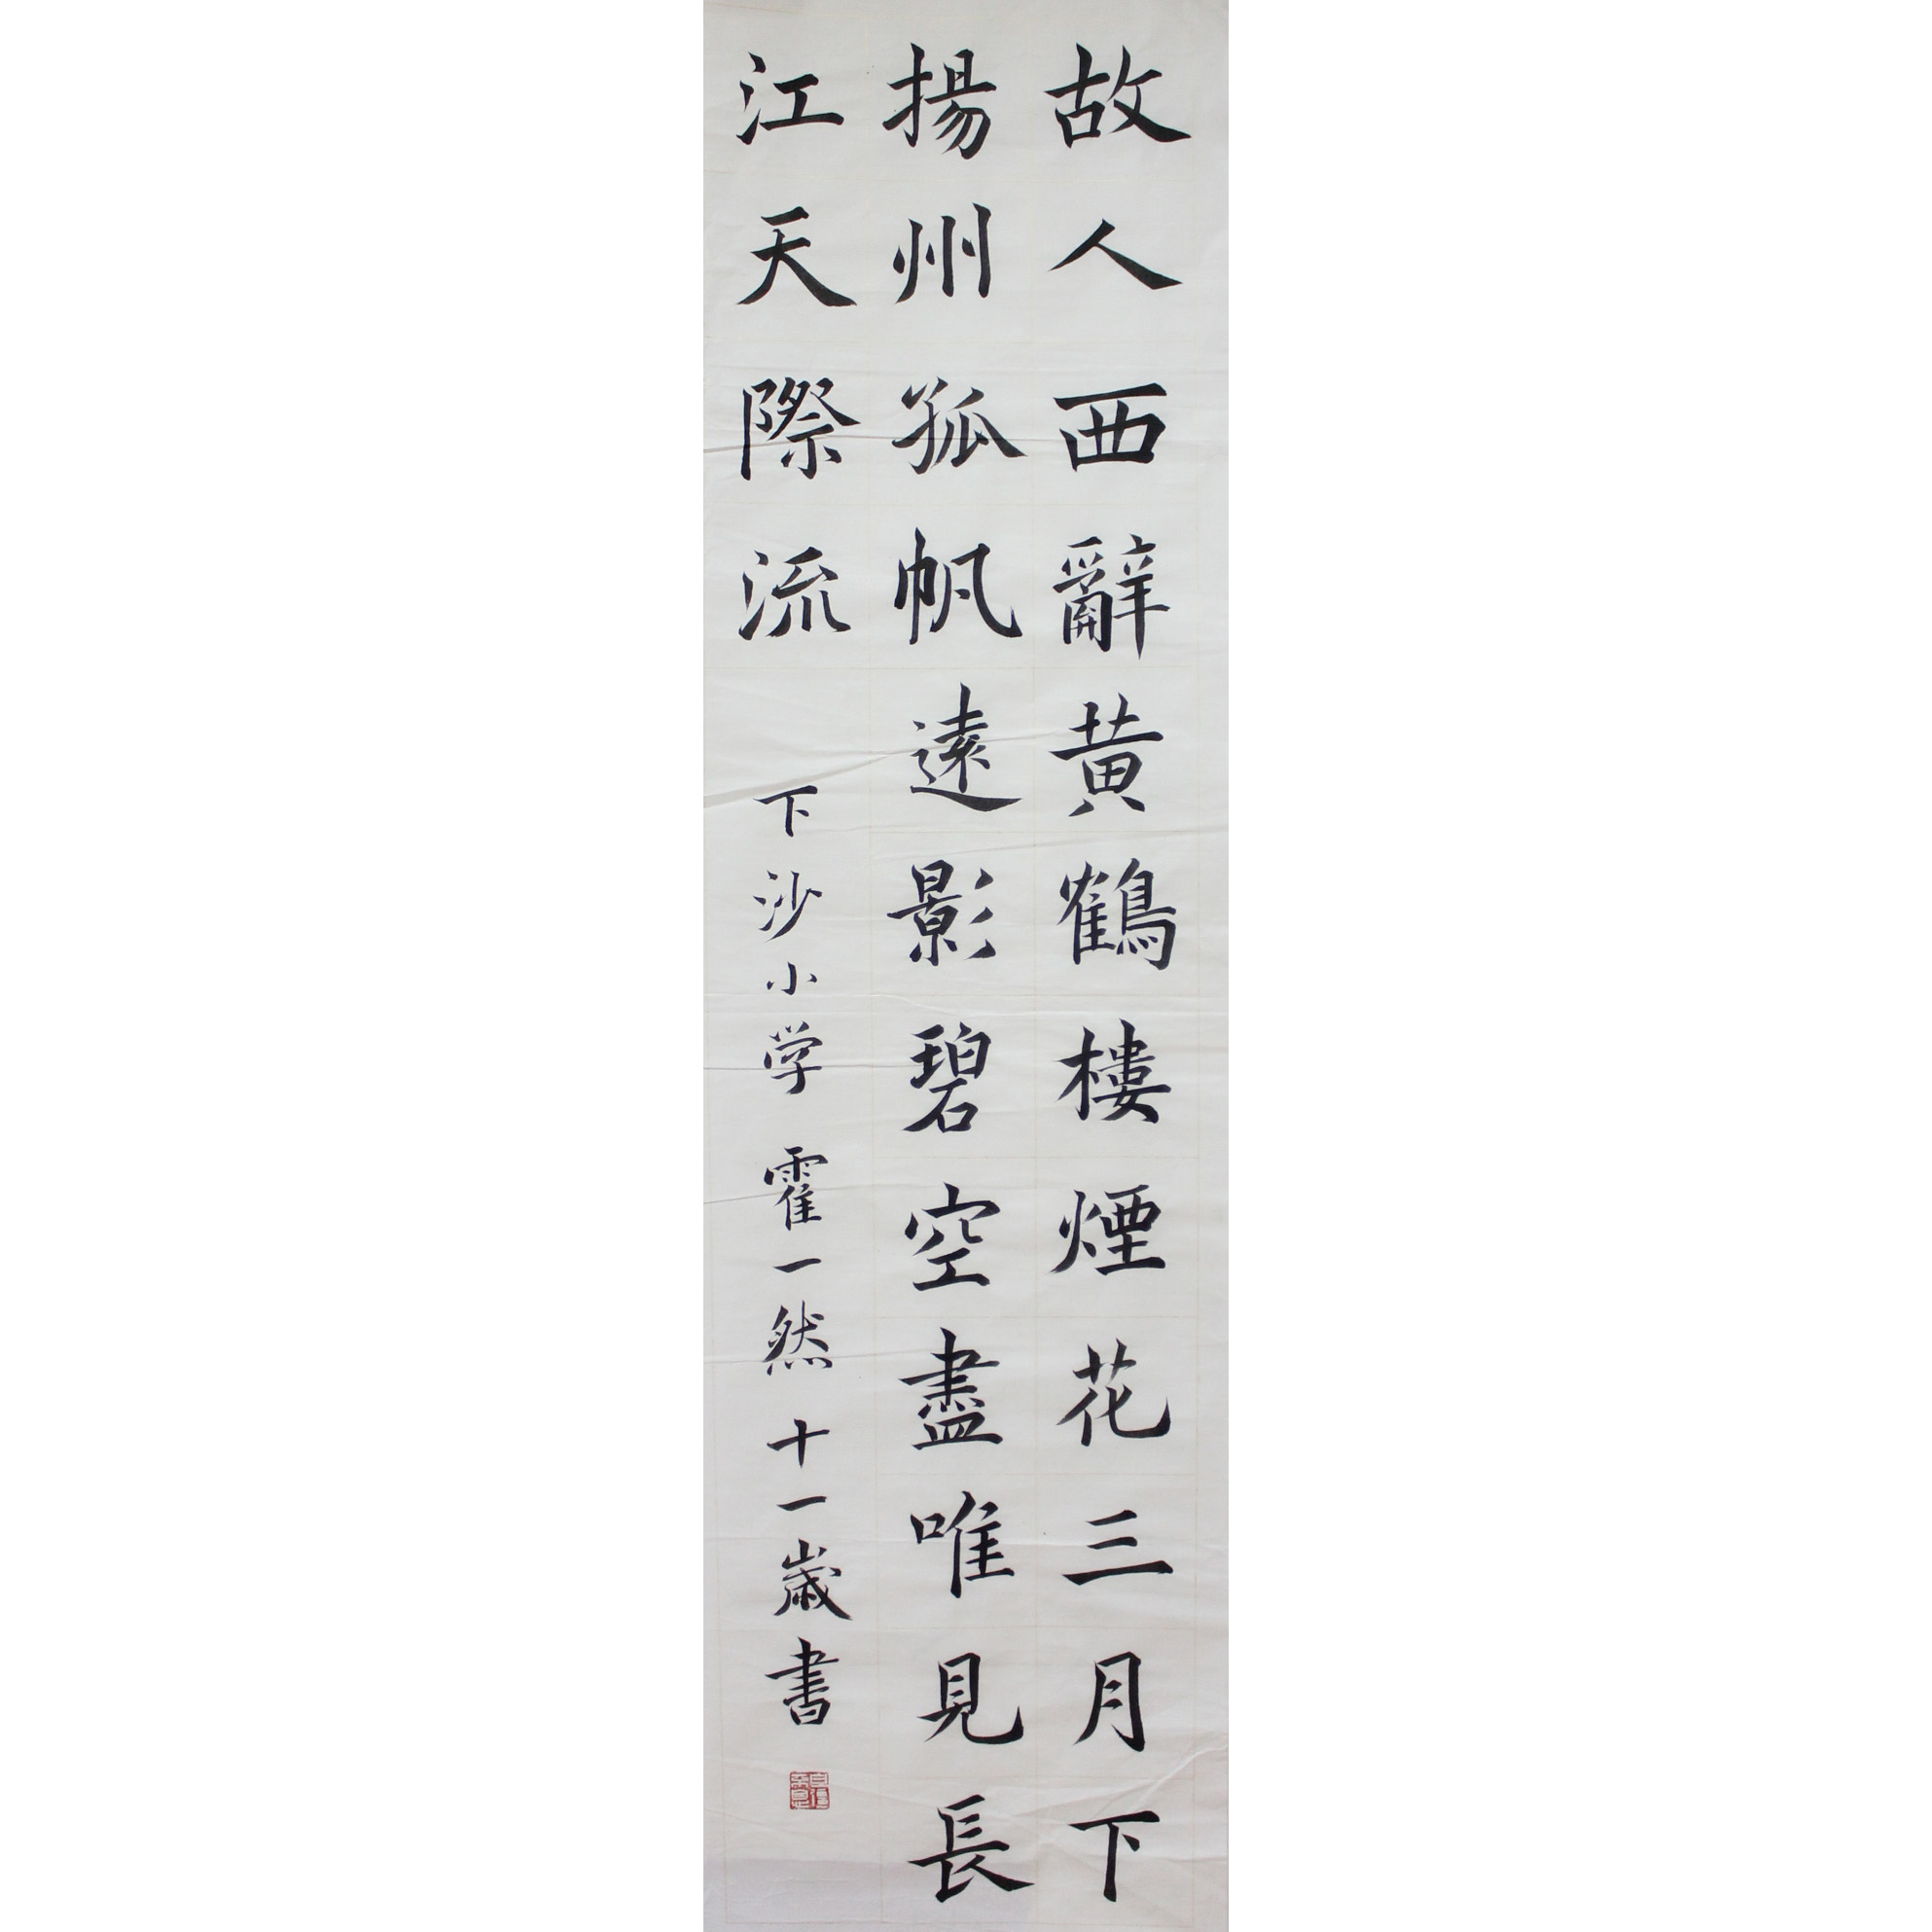 故人西辭黄鶴樓煙花三月下
揚州孤帆遠影碧空盡唯見長
江天際流
下沙小学 霍一然 十一歳書